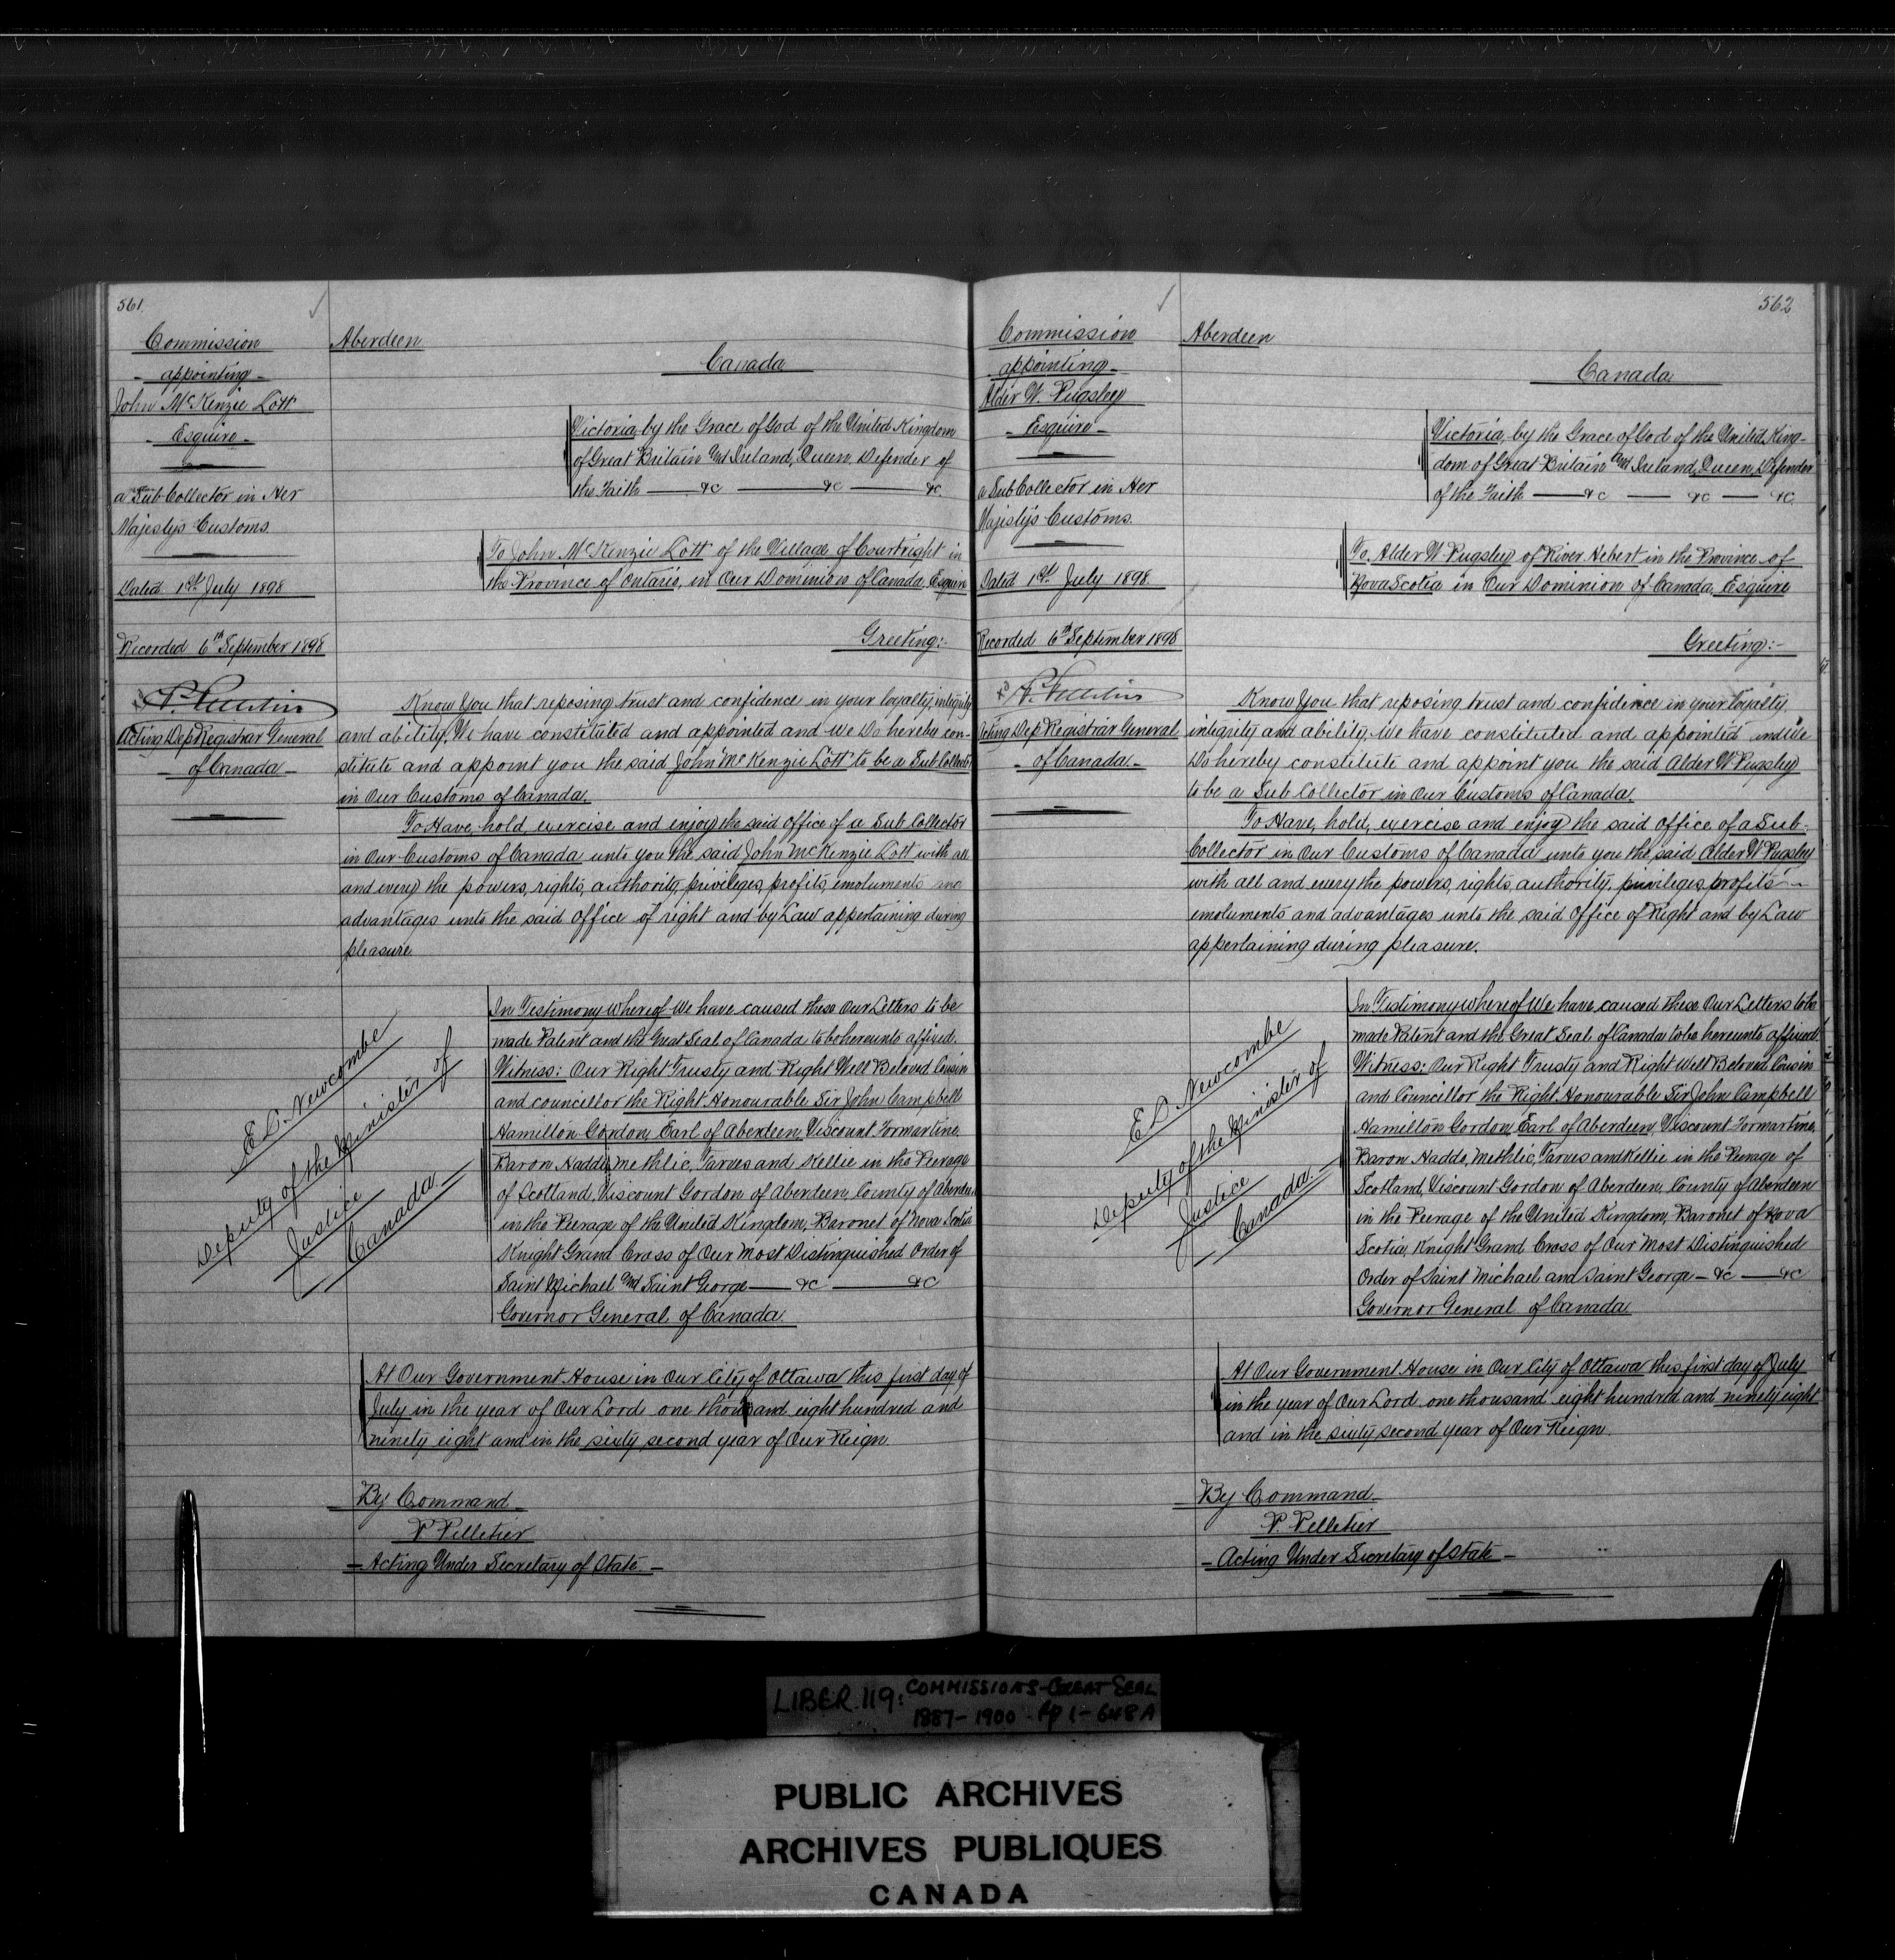 561
Commission
- appointing -
John McKenzie Lott
- Esquire -
a Sub Collector in Her
Majesty's Customs.
Dated 1st July 1898
Recorded 6th September 1898
P. Pelletier
Acting Dep Registrar General
- of Canada -
Aberdeen
Canada
Victoria, by the Grace of God of the United Kingdom
of Great Britain and Ireland, Queen, Defender of
the Faith — &c — &c — &c.
To John McKenzie Lott of the Village of Courtright in
the Province of Ontario, in Our Dominion of Canada, Esquire
Greeting:-
Know You that reposing trust and confidence in your loyalty, integrity
and ability, We have constituted and appointed and We Do hereby con-
stitute and appoint you the said John McKenzie Lott to be a Sub Collector
in Our Customs of Canada.
To Have, hold, exercise and enjoy the said office of a Sub Collector
in Our Customs of Canada unto you the said John McKenzie Lott with all
and every the powers, rights, authority, privileges, profits, emoluments and
advantages unto the said Office of right and by Law appertaining during
pleasure.
E.L. Newcombe
Deputy of the Minister of
Justice
Canada
In Testimony Whereof We have caused these Our Letters to be
made Patent and the Great Seal of Canada to be hereunto affixed.
Witness: Our Right Trusty and Right Well Beloved Cousin
and Councillor the Right Honourable Sir John Campbell
Hamilton Gordon, Earl of Aberdeen, Viscount Formartine,
Baron Haddo, Methlic, Tarves and Kellie in the Peerage
of Scotland, Viscount Gordon of Aberdeen, County of Aberdeen
in the Peerage of the United Kingdom, Baronet of Nova Scotia
Knight Grand Cross of Our Most Distinguished Order of
Saint Michael and Saint George — &c — &c
Governor General of Canada.
At Our Government House in Our City of Ottawa this first day of
July in the year of Our Lord one thousand eight hundred and
ninety eight and in the sixty second year of Our Reign.
By Command
P Pelletier
- Acting Under Secretary of State -
562
Commission
appointing -
Alder W. Pugsley
- Esquire -
a Sub Collector in Her
Majesty's Customs.
Dated 1st July 1898
Recorded 6th September 1898
P. Pelletier
Acting Dep Registrar General
- of Canada -
Aberdeen
Canada
Victoria, by the Grace of God of the United King-
dom of Great Britain and Ireland, Queen, Defender
of the Faith — &c — &c — &c.
To Alder W Pugsley of River Hebert in the Province of
Nova Scotia in Our Dominion of Canada, Esquire
Greeting:-
Know You that reposing trust and confidence in your loyalty,
integrity and ability, We have constituted and appointed and We
Do hereby constitute and appoint you the said Alder W Pugsley
to be a Sub Collector in Our Customs of Canada.
To Have, hold, exercise and enjoy the said office of a Sub-
Collector in Our Customs of Canada unto you the said Alder W Pugsley
with all and every the powers, rights, authority, privileges, profits
emoluments and advantages unto the said Office of Right and by Law
appertaining during pleasure.
E.L. Newcombe
Deputy of the Minister of
Justice
Canada
In Testimony whereof We have caused these Our Letters to be
made Patent and the Great Seal of Canada to be hereunto affixed.
Witness: Our Right Trusty and Right Well Beloved Cousin
and Councillor the Right Honourable Sir John Campbell
Hamilton Gordon, Earl of Aberdeen, Viscount Formartine,
Baron Haddo, Methlic, Tarves and Kellie in the Peerage of
Scotland, Viscount Gordon of Aberdeen, County of Aberdeen
in the Peerage of the United Kingdom, Baronet of Nova
Scotia, Knight Grand Cross of Our Most Distinguished
Order of Saint Michael and Saint George — &c — &c
Governor General of Canada.
At Our Government House in Our City of Ottawa this first day of July
in the year of Our Lord one thousand eight hundred and ninety eight
and in the sixty second year of Our Reign.
By Command
P. Pelletier
- Acting Under Secretary of State -
LIBER. 119: COMMISSIONS - GREAT SEAL
1887 - 1900 - Pp 1 - 648A
PUBLIC ARCHIVES
ARCHIVES PUBLIQUES
CANADA